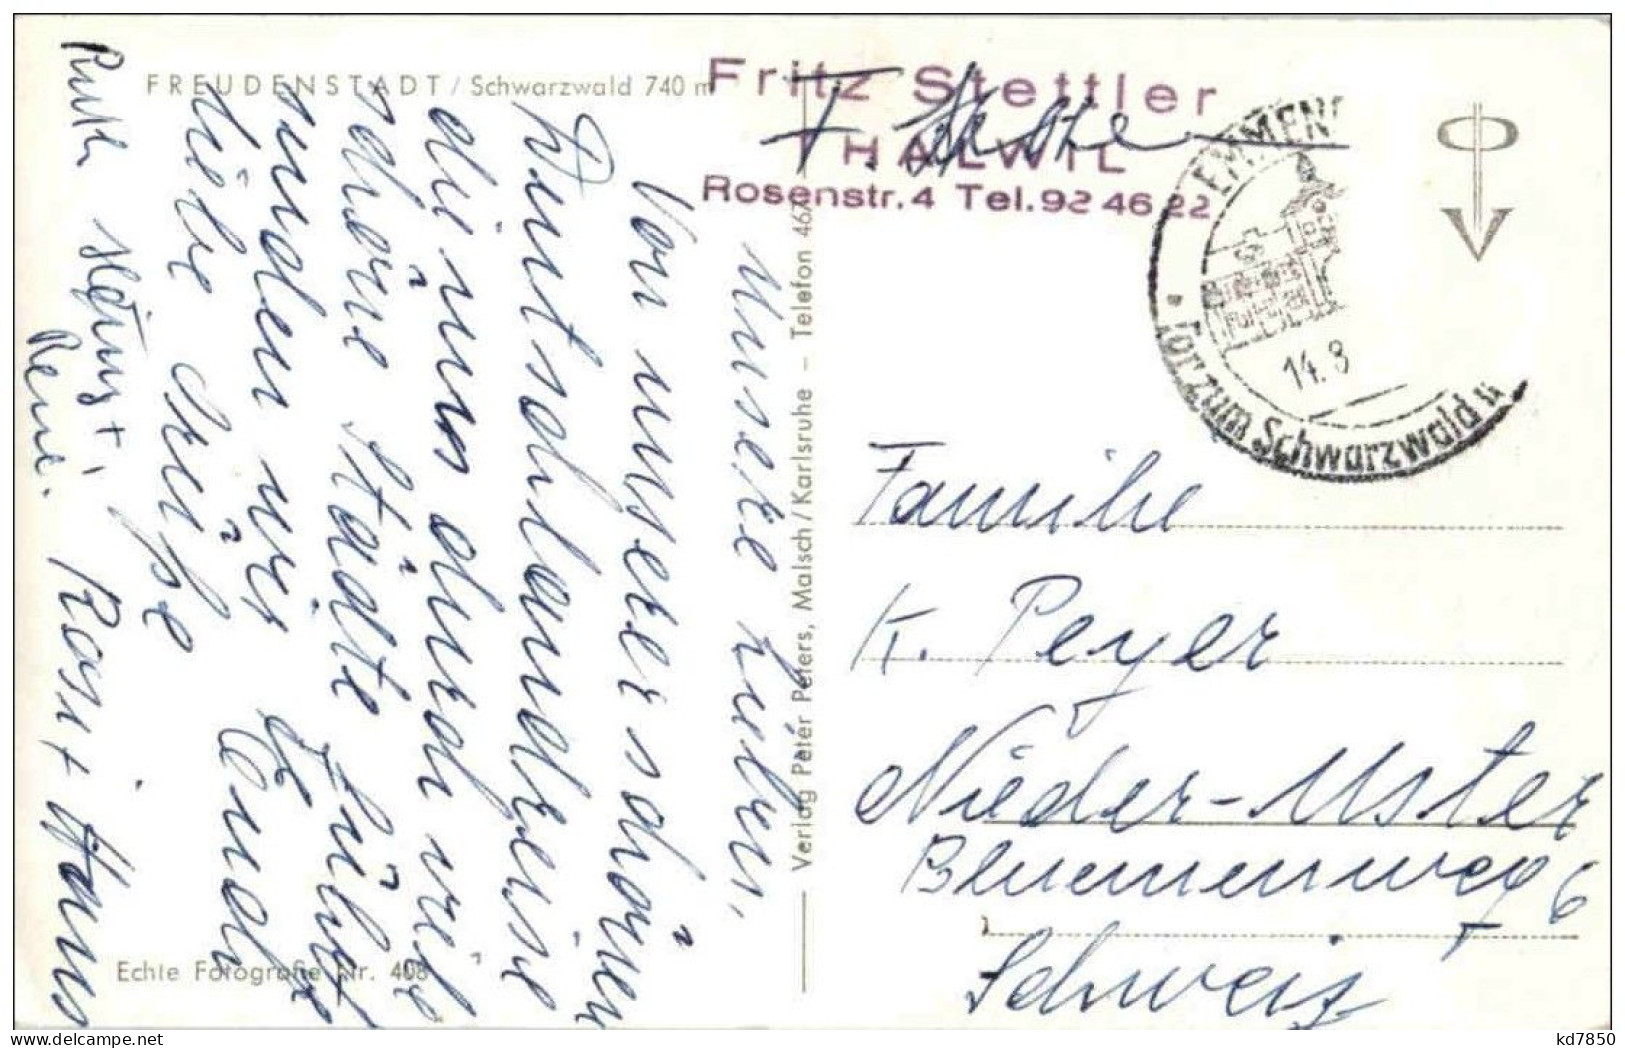 FREUDENSTADT / Schwarzwald 740 m
Fritz Stettler
THALWIL
Rosenstr. 4 Tel. 92 46 22
EMMEN
Tor zum Schwarzwald u
14. 8
Unsere Lieben,
Von unserer schönen
Deutschlandreise
die uns durch viele
schöne Städte führt
senden wir Euch
liebe Grüsse
Rosi + Hans
Ruth
René.
Familie
K. Peyer
Nieder-Uster
Blumenweg 6
Schweiz
Verlag Peter Peters, Malsch/Karlsruhe – Telefon 467
Echte Fotografie Nr. 408
kd7850